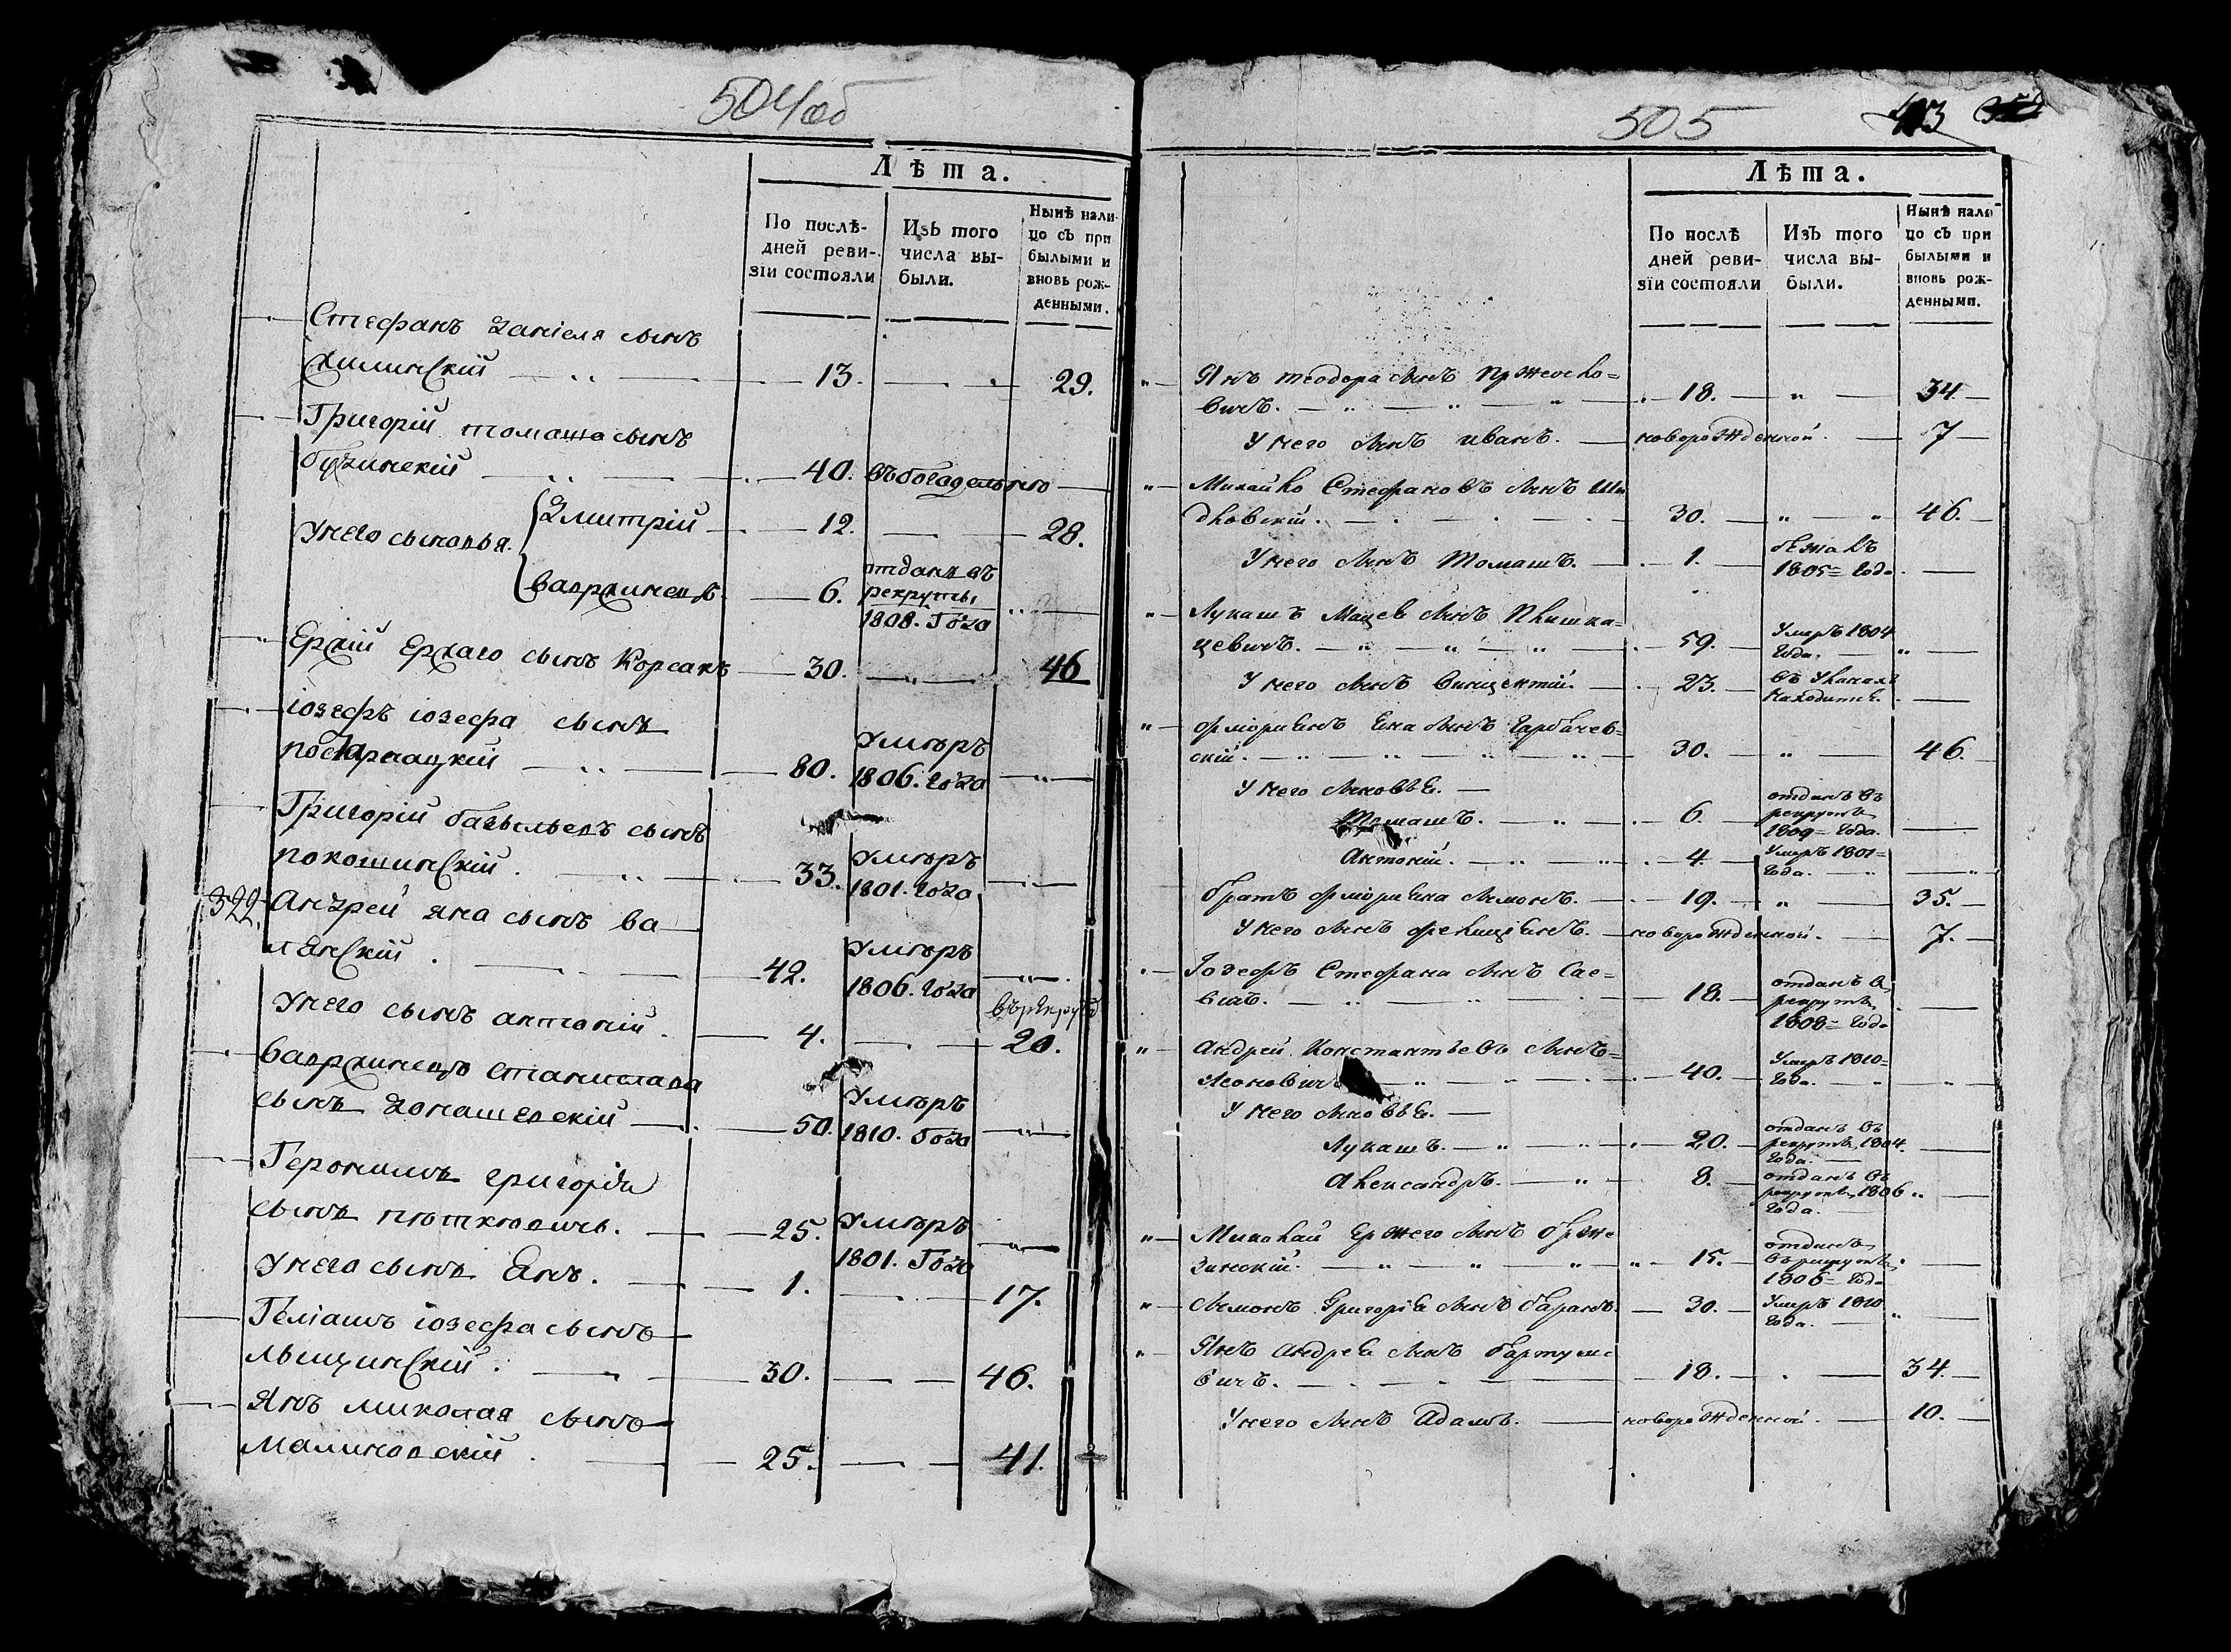 504 об
Лѣта.
По послѣ-
дней реви-
зіи состояли
Изъ того
числа вы-
были.
Нынѣ нали-
цо съ при
былыми и
вновь рож-
денными.
Стефанъ Даніеля сынъ
Жилинскій 13. 29.
Григорій томаша сынъ
40. въ богадельню
Унего сыновья. Дмитрій 12. 28.
Вавржинецъ. 6. отданъ въ
рекруты
1808. Года
Ержій Ержаго сынъ Корсакъ 30. 46
іозефъ іозефа сынъ
80. Умеръ
1806. года
Григорій сынъ
покошинскій. 33. Умеръ
1801. года
322. Андрей яна сынъ ва
42. Умеръ
1806. года
Унего сынъ антоній. 4. 20.
въ рекрутъ
Вавржинецъ Станислава
сынъ Домашевскій 50. Умеръ
1810. Года
Геронимъ григорія
сынъ 25. Умеръ
1801. Года
Унего сынъ Янъ. 1. 17.
іозефа сынъ
льщинскій. 30. 46.
Янъ миколая сынъ
Малиновскій. 25. 41.
505 43
Лѣта.
По послѣ
дней реви-
зіи состояли
Изъ того
числа вы-
были.
Нынѣ нали
цо съ при
былыми и
вновь рож-
денными.
Янъ теодора сынъ
вичъ. 18. 34
У него сынъ иванъ. новорожденной. 7
Михайло Стефановъ сынъ Ши
дловскій. 30. 46.
У него сынъ Томашъ. 1. бежалъ
1805= Года.
Лукашъ Мацев сынъ
цевичъ. 59. Умеръ 1804
Года.
У него сынъ Винцентій. 23.
находится.
флоріянъ сынъ Гарбачев=
скій. 30. 46.
У него сыновья.
Томашъ. 6. отданъ въ
рекруты
1809= Года.
Антоній. 4. Умеръ 1801=
Года.
братъ флоріяна сымонъ. 19. 35.
У него сынъ фелиціянъ. новорожденной. 7.
Іозефъ Стефана сынъ Сае=
18. отданъ в
рекруты
1808= Года
Андрей Константьевъ сынъ=
Леоновичъ 40. Умеръ 1810=
Года.
У него сыновья.
Лукашъ. 20. отданъ въ
рекруты 1804.
Года.
Александръ. 8. отданъ въ
рекруты 1806
Года.
Миколай Ержего сынъ брже
зинскій. 15. отданъ
въ рекруты
1806= Года
сымонъ Григорія сынъ баранъ. 30. Умеръ 1810
Года.
Янъ Андрея сынъ
вичъ. 18. 34.
У него сынъ Адамъ. новорожденной. 10.